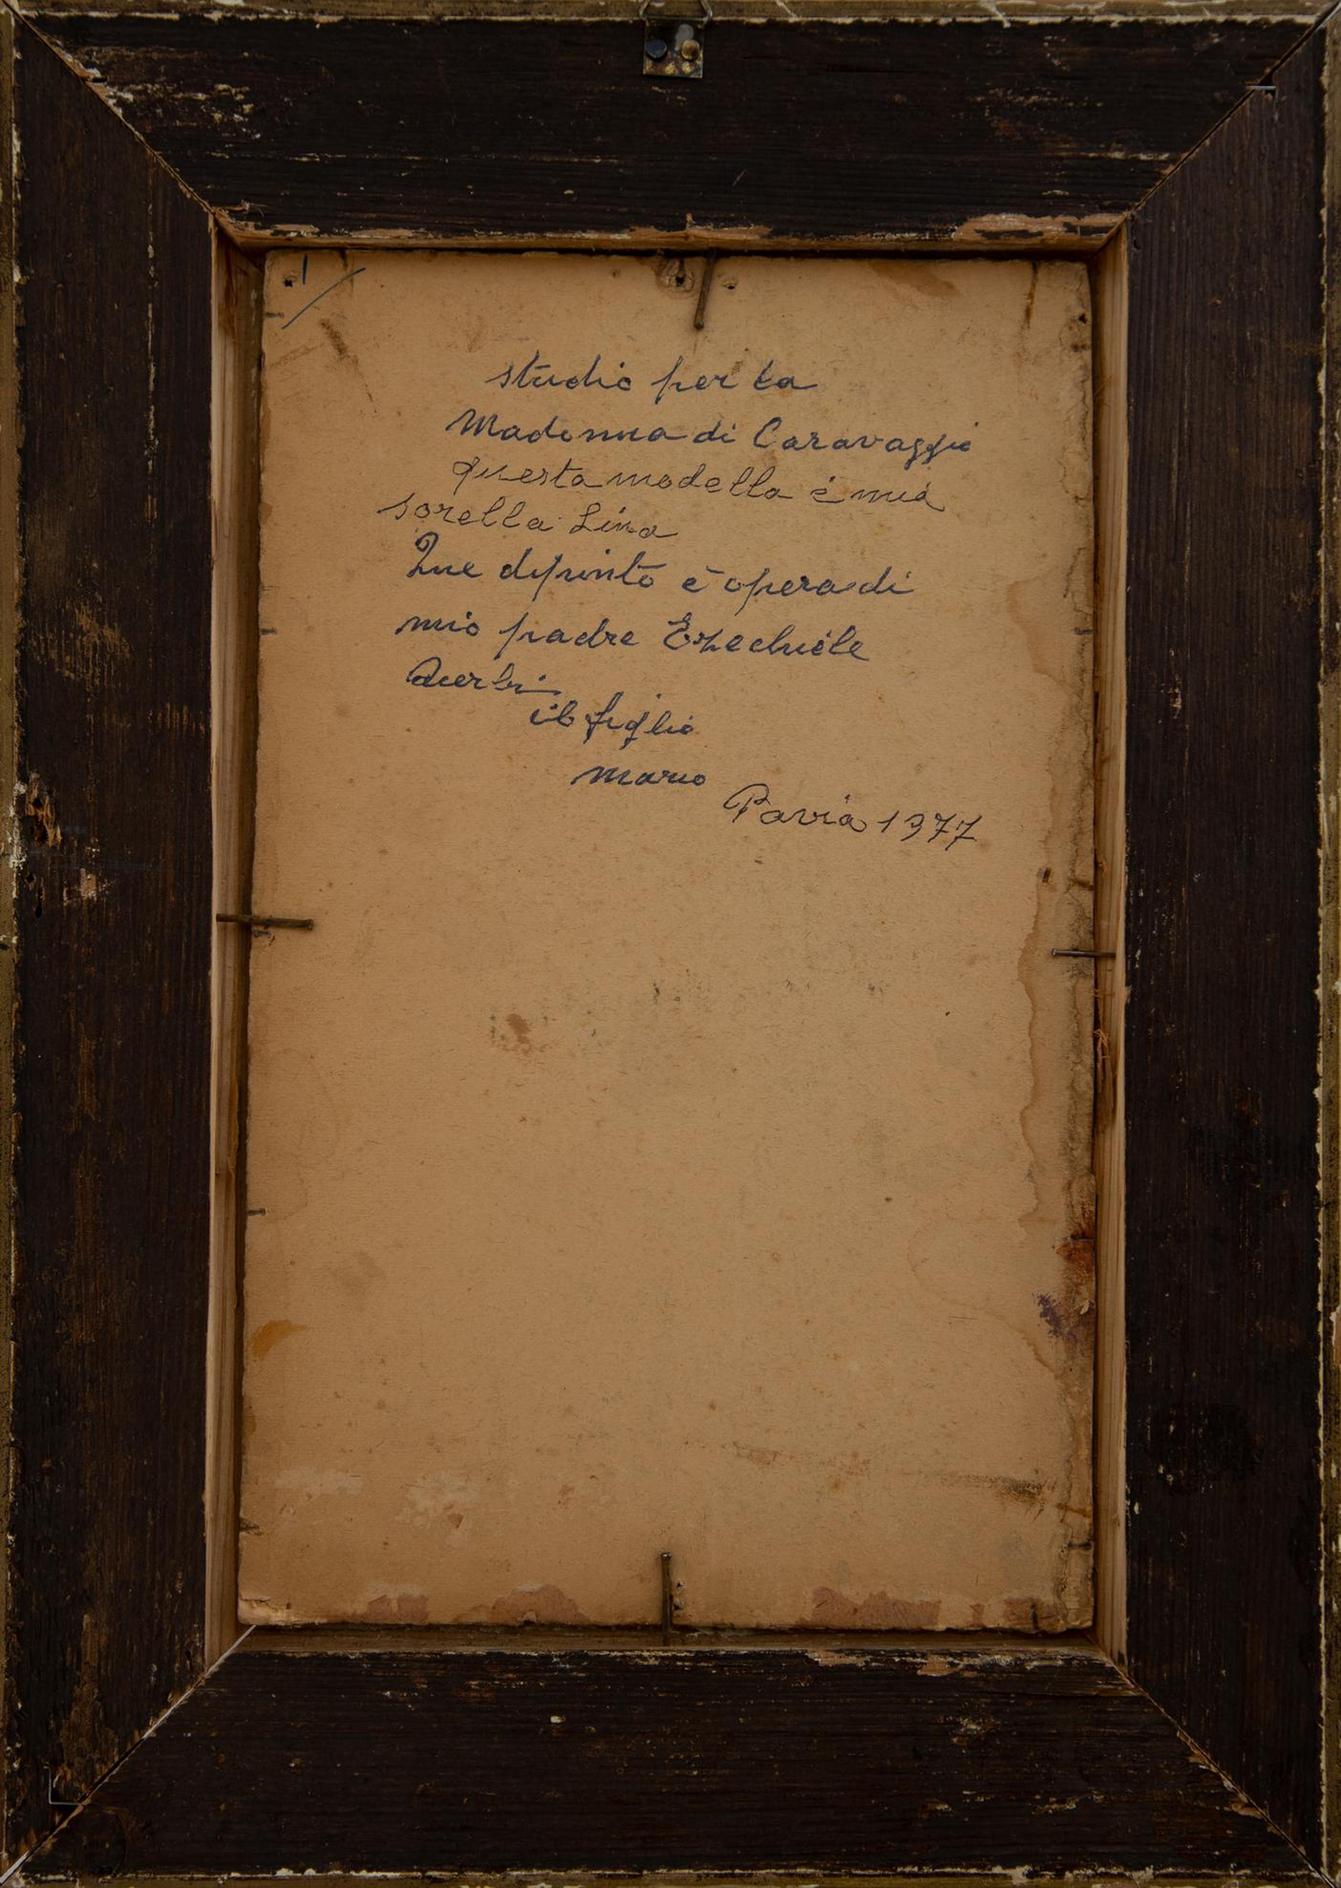 1
studio per la
Madonna di Caravaggio
questa modella è mia
sorella Lina
Que dipinto è opera di
mio padre Ezechiele
Acerbi
il figlio
Mario
Pavia 1977